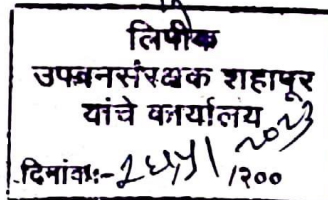 लिपीक
उपवनसंरक्षक शहापूर
यांचे कार्यालय
दिनांक:- /२००